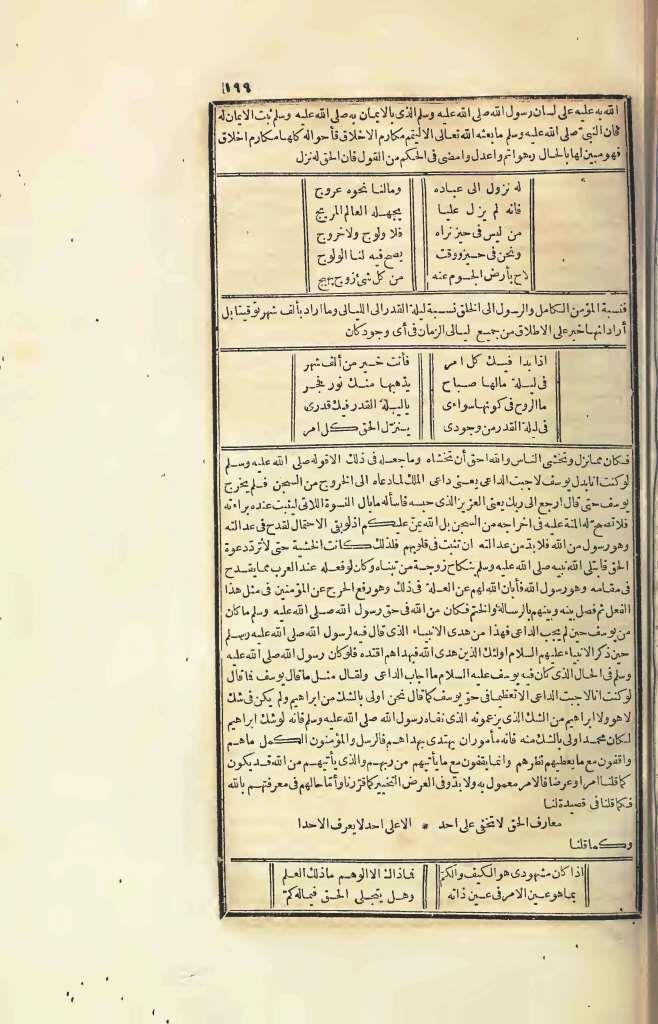 ١٩٩
الله به عليه على لسان رسول الله صلى الله عليه وسلم الذى بالايمان به صلى الله عليه وسلم ثبت الايمان له
فان النبىّ صلى الله عليه وسلم ما بعثه الله تعالى الا ليتمم مكارم الاخلاق فأحواله كلها مكارم اخلاق
فهو مبين لها بالحال وهو اتم واعدل وامضى فى الحكم من القول فان الحق له نزل
له نزول الى عباده وما لنا نحوه عروج
فانه لم يزل عليا يجهله العالم المريج
من ليس فى حيز نراه فلا ولوج ولا خروج
ونحن فى حيز ووقت يصح فيه لنا الولوج
لاح بأرض الجسوم عنه من كل شئ زوج بهيج
فنسبة المؤمن الكامل والرسول الى الخلق نسبة ليلة القدر الى الليالى وما اراد بألف شهر توقيتا بل
أراد انها خير على الاطلاق من جميع ليالى الزمان فى أى وجود كان
اذا بدا فيك كل امر فأنت خير من ألف شهر
فى ليلة مالها صباح يذهبها منك نور فجر
ما الروح فى كونها سواءى يا ليلة القدر فيك قدرى
فى ليلة القدر من وجودى يتنزل الحق كل امر
فكان مما نزل وتخشى الناس والله احق أن تخشاه وما جعله فى ذلك الا قوله صلى الله عليه وسلم
لو كنت انا بدل يوسف لاجبت الداعى يعنى داعى الملك لما دعاه الى الخروج من السجن فلم يخرج
يوسف حتى قال ارجع الى ربك يعنى العزيز الذى حبسه فاسأله ما بال النسوة اللاتى ليثبت عنده براءته
فلا تصح له المنة عليه فى اخراجه من السجن بل الله يمنّ عليكم اذ لو بقى الاحتمال لقدح فى عدالته
وهو رسول من الله فلا بدّ من عدالته ان تثبت فى قلوبهم فلذلك كانت الخشية حتى لا تردّ دعوة
الحق فابتلى الله نبيه صلى الله عليه وسلم بنكاح زوجة من تبناه وكان لو فعله عند العرب مما يقدح
فى مقامه وهو رسول الله فأبان الله لهم عن العلة فى ذلك وهو رفع الحرج عن المؤمنين فى مثل هذا
الفعل ثم فصل بينه وبينهم بالرسالة والختم فكان من الله فى حق رسول الله صلى الله عليه وسلم ما كان
من يوسف حين لم يجب الداعى فهذا من هدى الانبياء الذى قال فيه لرسول الله صلى الله عليه وسلم
حين ذكر الانبياء عليهم السلام اولئك الذين هدى الله فبهداهم اقتده فلو كان رسول الله صلى الله عليه
وسلم فى الحال الذى كان فيه يوسف عليه السلام ما اجاب الداعى ولقال مثل ما قال يوسف فما قال
لو كنت انا لاجبت الداعى الا تعظيما فى حق يوسف كما قال نحن اولى بالشك من ابراهيم ولم يكن فى شك
لا هو ولا ابراهيم من الشك الذى يزعمونه الذى نفاه رسول الله صلى الله عليه وسلم فانه لو شك ابراهيم
لكان محمد اولى بالشك منه فانه مأمور ان يهتدى بهداهم فالرسل والمؤمنون الكمل ما هم
واقفون مع ما يعطيهم نظرهم وانما يقفون مع ما يأتيهم من ربهم والذى يأتيهم من الله قد يكون
كما قلنا امرا وعرضا فالامر معمول به ولا بدّ وفى العرض التخيير كما قرّرناه وأمّا حالهم فى معرفتهم بالله
فكما قلنا فى قصيدة لنا
معارف الحق لا تخفى على احد * الا على احد لا يعرف الاحدا
وكما قلنا
اذا كان مشهودى هو الكيف والكمّ فما ذاك الا الوهم ما ذلك العلم
بما هو عين الامر فى عين ذاته وهل يتجلى الحق فيما له كمّ